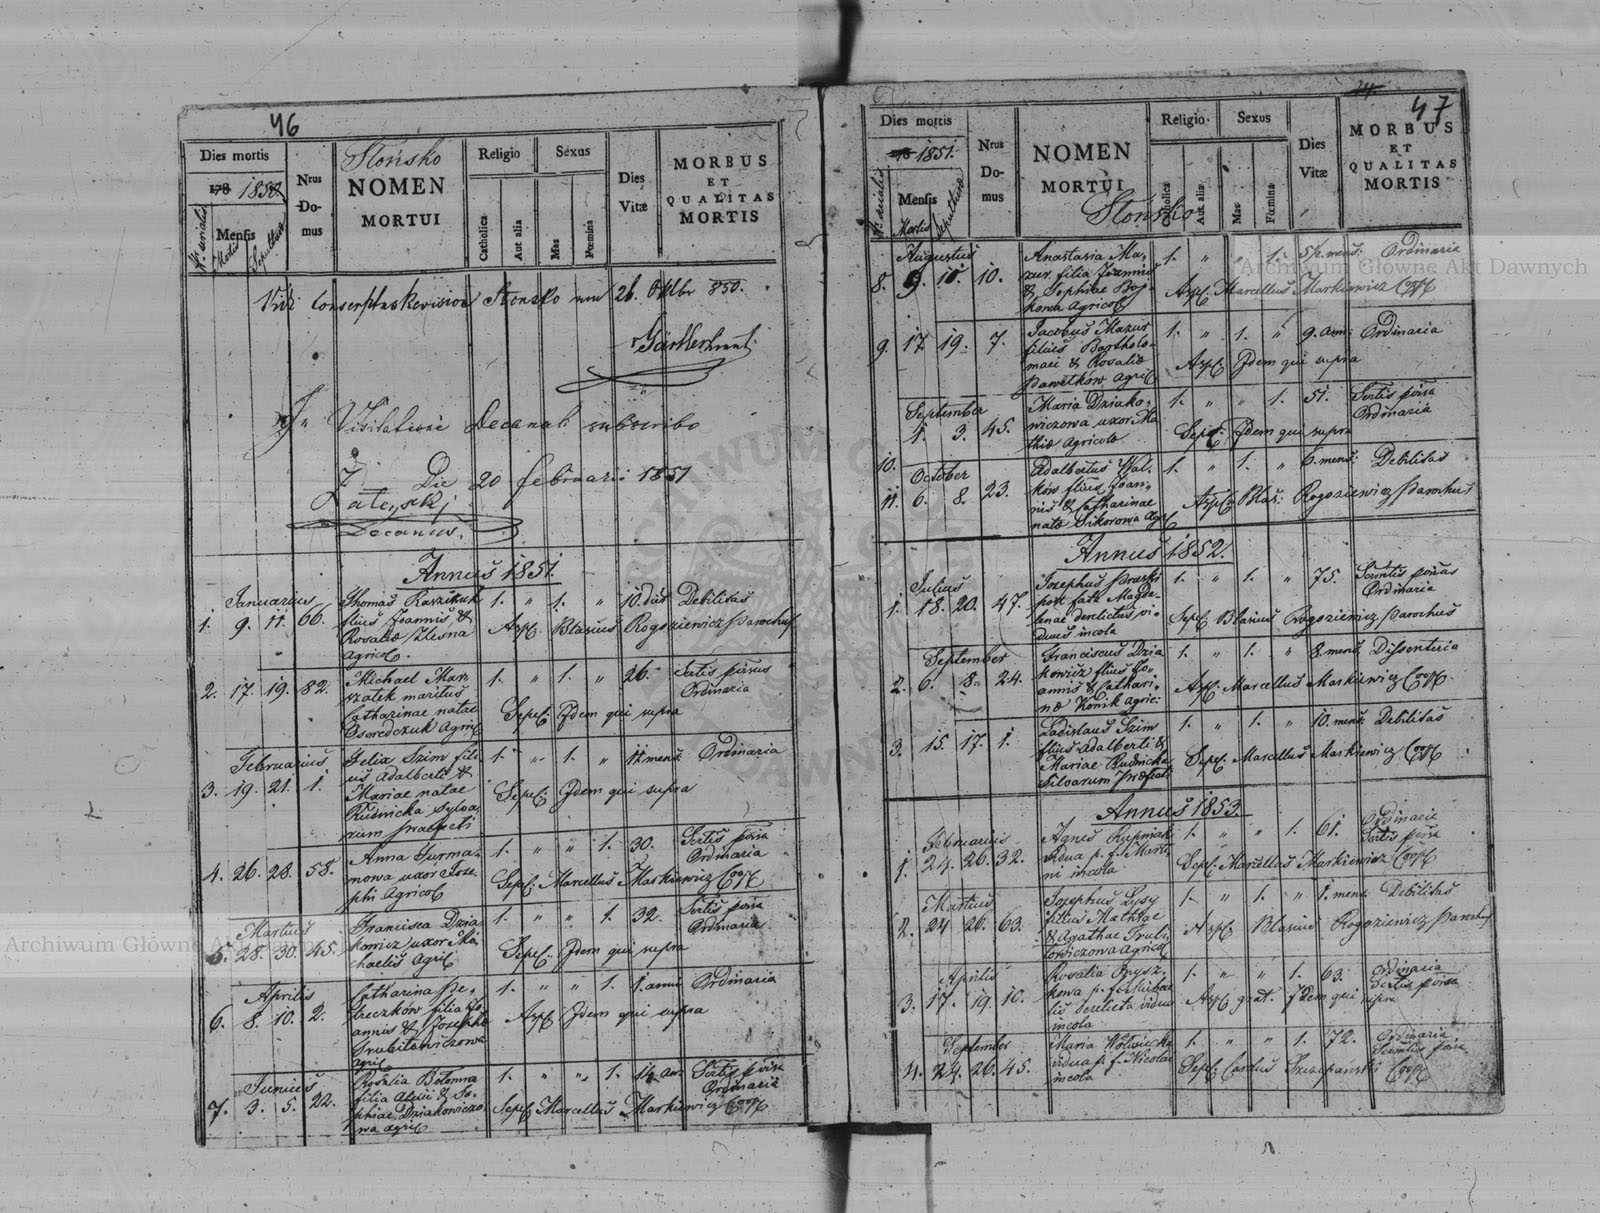 46
Dies mortis
178 1850.
Nrus Domus
Słońsko
NOMEN
MORTUI
Religio
Sexus
Dies
Vitæ
MORBUS
ET
QUALITAS
MORTIS
Nr. serialis
Mensis
Mortis
Sepulturæ
Catholica
Aut alia
Mas
Fœmina
Vidi Słonsko 26. 850.
In Visitatione Decanali subscribo
Die 20 Februarii 1851
Decanus.
Annus 1851.
Januarius
1. 9. 11. 66.
Thomas
filius Joannis &
Rosaliæ
Agricol.
1. " 1. " 10. dies Debilitas
Asp. Blasius Rogoziewicz Parochus
2. 17. 19. 82.
Michael Mar-
szałek maritus
Catharinae natae
Agric
1. " 1. " 26. Ordinaria
Sepel. Idem qui supra
Februarius
3. 19. 21. 1.
Felix Szim fili-
us Adalberti &
Mariae natae
Rudnicka Sylva-
rum Praefecti
1. " 1. " mens. Ordinaria
Sepel. Idem qui supra
4. 26. 28. 58.
Anna Furma-
nowa uxor Jose-
phi Agricol
1. " " 1. 30. Ordinaria
Sepel. Marcellus Markiewicz Coop
Martius
5. 28. 30. 45.
Francisca Dzia-
kowicz uxor Mi-
chaelis Agric
1. " " 1. 32. Ordinaria
Sepel. Idem qui supra
Aprilis
6. 8. 10. 2.
Catharina Pe-
treczków filia Jo-
annis & Josepha
Hrubitowiczowa
agric
1. " " 1. 1. anni Ordinaria
Asp Idem qui supra
Junius
7. 3. 5. 22.
Rosalia
filia Alexii & So-
phiae Dziakowiczo-
wa agric
1. " " 1. 14 an. Ordinaria
Sepel Marcellus Markiewicz Coop
47
Dies mortis
18 1851.
Nrus
Do-
mus
NOMEN
MORTUI
Słońsko
Religio
Sexus
Dies
Vitæ
MORBUS
ET
QUALITAS
MORTIS
Nr. serialis
Mensis
Mortis
Sepulturæ
Catholica
Aut alia
Mas
Fœmina
Augustus
8. 9. 10. 10.
Anastasia Ma-
zur filia Joannis
& Sophiae Boj-
kowa Agricol
1. " " 1. 5½ mens. Ordinaria
Asp. Marcellus Markiewicz Coop
9. 17. 19. 7.
Jacobus Mazur
filius Bartholo-
maei & Rosaliæ
Pawełków Agric
1. " 1. " 9. ann: Ordinaria
Asp Idem qui supra
September
10. 1. 3. 45.
Maria Dziako-
wiczowa uxor Ma-
thiæ Agricolæ
1. " " 1. 51. Ordinaria
Sepel. Idem qui supra
October
11. 6. 8. 23.
Adalbertus Wal-
ków filius Joan-
nis & Catharinae
natæ Sikorowa Agr
1. " 1. " 6. mens: Debilitas
Asp Blas: Rogoziewicz Parochus
Annus 1852.
Julius
1. 18. 20. 47.
Josephus
post fata Magda-
lenae derelictus vi-
duus incola
1. " 1. " 75. Ordinaria
Sepel Blasius Rogoziewicz Parochus
September
2. 6. 8. 24.
Franciscus Dzia-
kowicz filius Jo-
annis & Cathari-
næ Konik agric:
1. " 1. " 8. mens. Dissenteria
Asp. Marcellus Markiewicz Coop
3. 15. 17. 1.
Ladislaus Szim
filius Adalberti &
Mariae Rudnicka
Silvarum Præfecti
1. " 1. " 10. mens: Debilitas
Sepel. Marcellus Markiewicz Coop
Annus 1853.
Februarius
1. 24. 26. 32.
Agnes
vidua p. f. Marti-
ni incola
1. " " 1. 61. Ordinaria
Sepel. Marcellus Markiewicz Coop
Martius
2. 24 26. 63.
Josephus Łysy
filius Mathiae
& Agathae Hrubi-
towiczowa Agricol
1. " 1. " 1. mens. Debilitas
Asp Blasius Rogoziewicz Parochus
Aprilis
3. 17. 19. 10.
Rosalia
kowa p. f. Micha-
lis derelicta vidua
incola
1. " " 1. 63. Ordinaria
Asp Idem qui supra
September
4. 24. 26. 45.
Maria
vidua p. f. Nicolai
incola
1. " " 1. 72. Ordinaria
Sepel. Carolus Szczepański Coop
Archiwum Główne Akt Dawnych